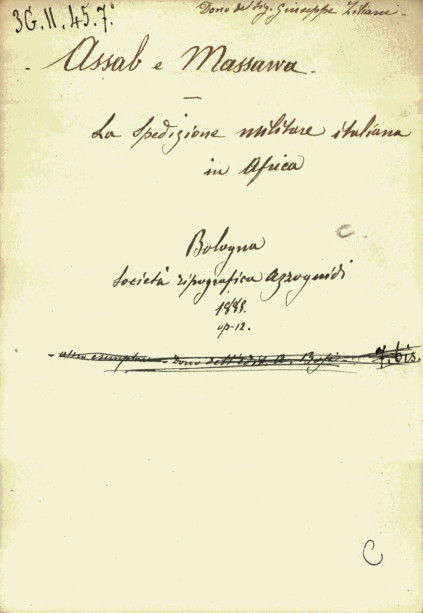 3G. II. 45. 7°
Dono del Sig. Giuseppe Ziliani -
- Assab e Massawa -
La Spedizione militare italiana
in Africa
Bologna
Società tipografica Azzoguidi
op-12.
- altro esemplare - Dono dell'edit. A.
7. bis.
C